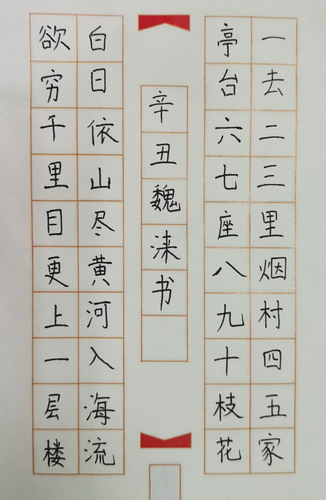 一去二三里烟村四五家
亭台六七座八九十枝花
辛丑魏涞书
白日依山尽黄河入海流
欲穷千里目更上一层楼